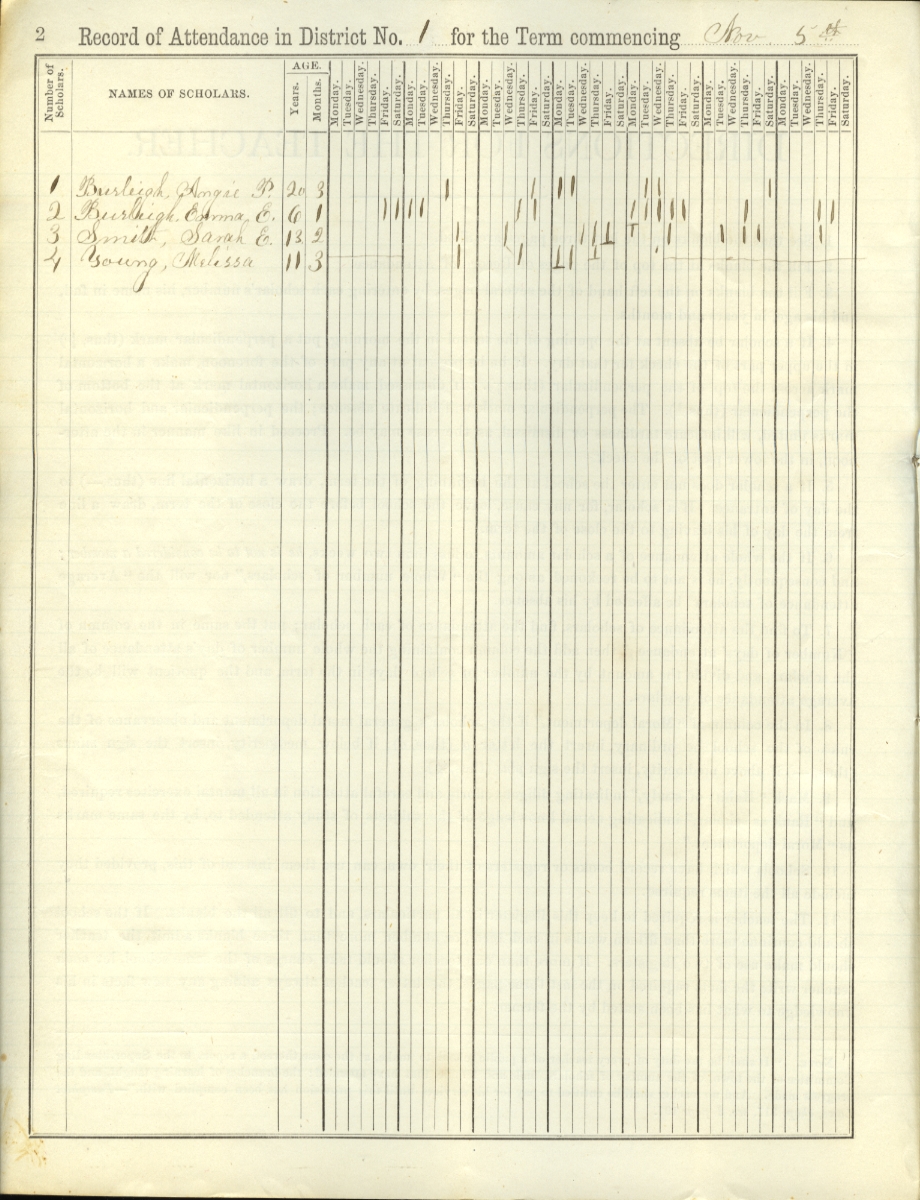 2 Record of Attendance in District No. 1 for the Term commencing Nov. 5th
Number of Scholars. NAMES OF SCHOLARS. AGE. Years. Months. Monday. Tuesday. Wednesday. Thursday. Friday. Saturday. Monday. Tuesday. Wednesday. Thursday. Friday. Saturday. Monday. Tuesday. Wednesday. Thursday. Friday. Saturday. Monday. Tuesday. Wednesday. Thursday. Friday. Saturday. Monday. Tuesday. Wednesday. Thursday. Friday. Saturday. Monday. Tuesday. Wednesday. Thursday. Friday. Saturday. Monday. Tuesday. Wednesday. Thursday. Friday. Saturday.
1 Burleigh, Angie P. 20 3
2 Burleigh, Emma, E. 6 1
3 Smith, Sarah E. 13 2
4 Young, Melissa 11 3